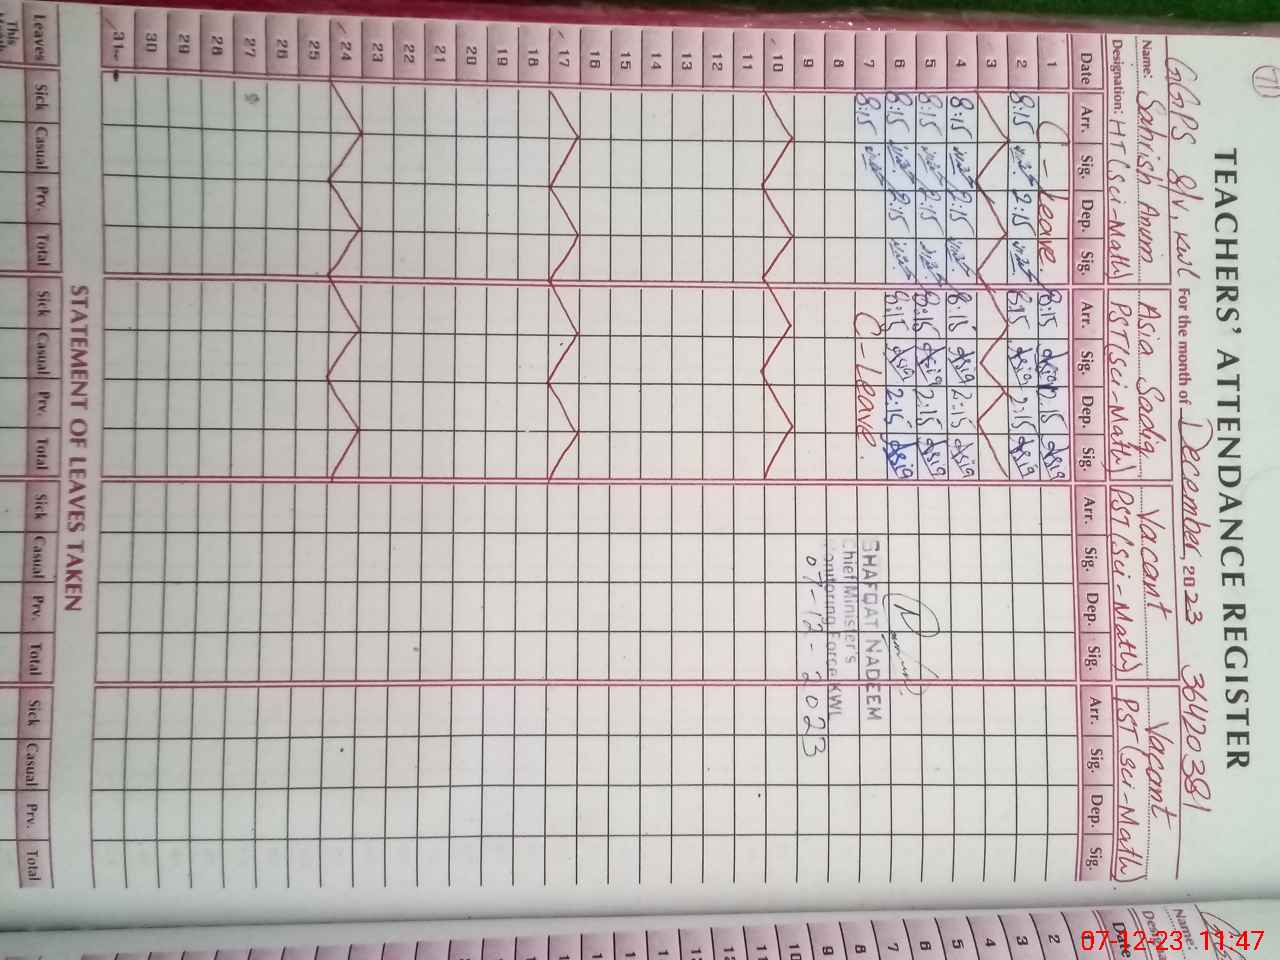 71
TEACHERS' ATTENDANCE REGISTER
GGPS 8/V, KWL For the month of December, 2023 36420381
Name: Sahrish Anum Asia Sadiq Vacant Vacant
Designation: HT (Sci-Math) PST (Sci-Math) PST (Sci-Math) PST (Sci-Math)
Date Arr. Sig. Dep. Sig. Arr. Sig. Dep. Sig. Arr. Sig. Dep. Sig. Arr. Sig. Dep. Sig.
1 C-Leave. 8:15 Asia 2:15 Asia
2 8:15 2:15 8:15 Asia 2:15 Asia
3
4 8:15 2:15 8:15 Asia 2:15 Asia
5 8:15 2:15 8:15 Asia 2:15 Asia
6 8:15 2:15 8:15 Asia 2:15 Asia
7 8:15 C-Leave.
SHAFQAT NADEEM
Chief Minister's
8
Monitoring Force KWL
9 07-12-2023
10
11
12
13
14
15
16
17
18
19
20
21
22
23
24
25
26
27
28
29
30
31
STATEMENT OF LEAVES TAKEN
Leaves Sick Casual Prv. Total Sick Casual Prv. Total Sick Casual Prv. Total Sick Casual Prv. Total
This
Name:
Date
1
2
3
4
5
6
7
8
9
10
11
07-12-23 11:47